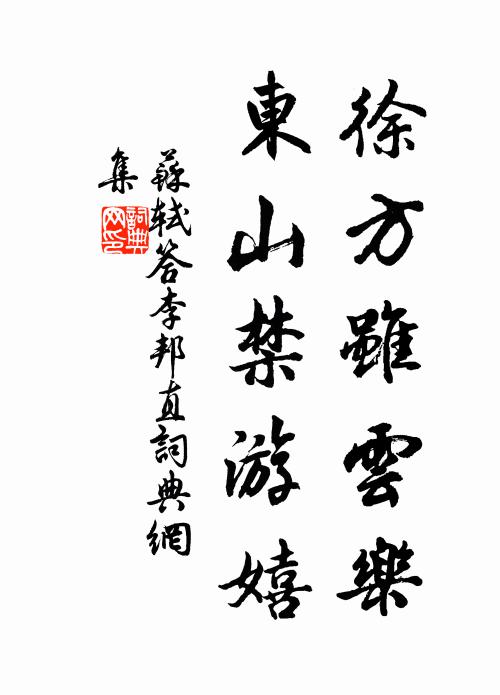 徐方雖雲樂
東山禁游嬉
蘇軾答李邦直詞典網
集
詞典
网印